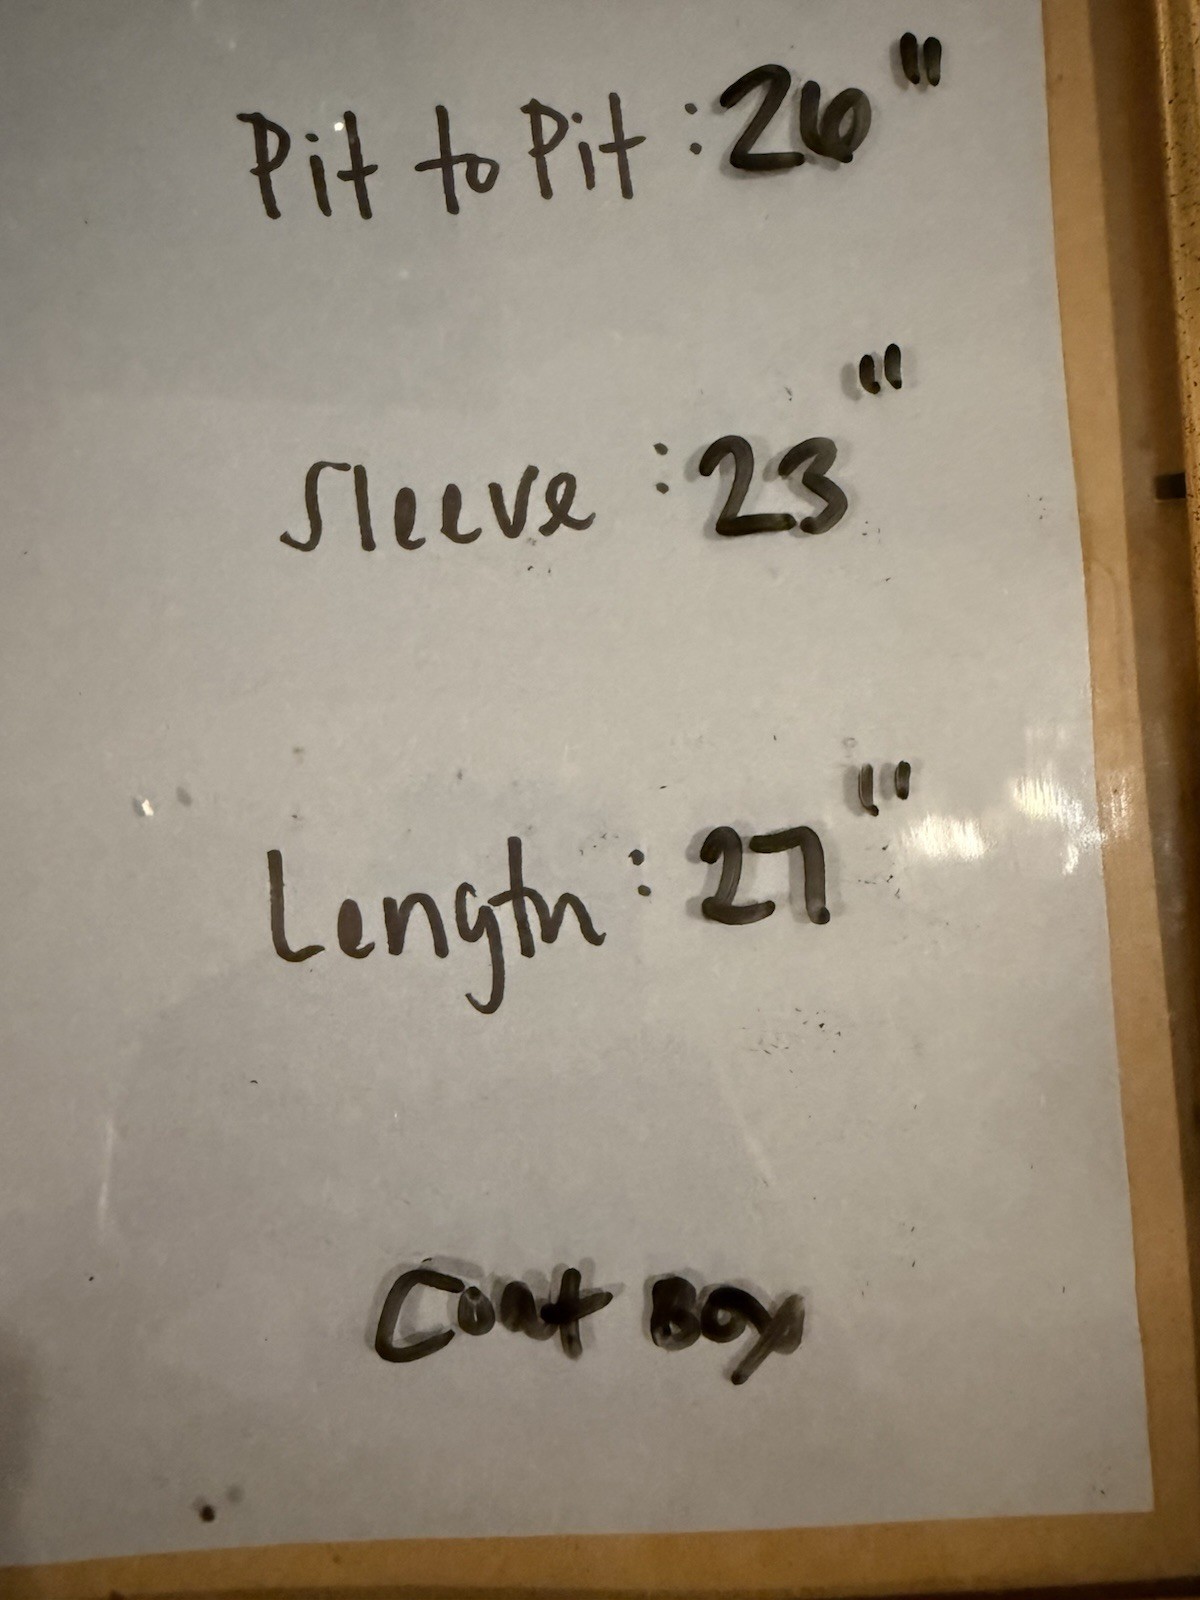 Pit to Pit : 26"
Sleeve : 23"
Length : 27"
Coat Box